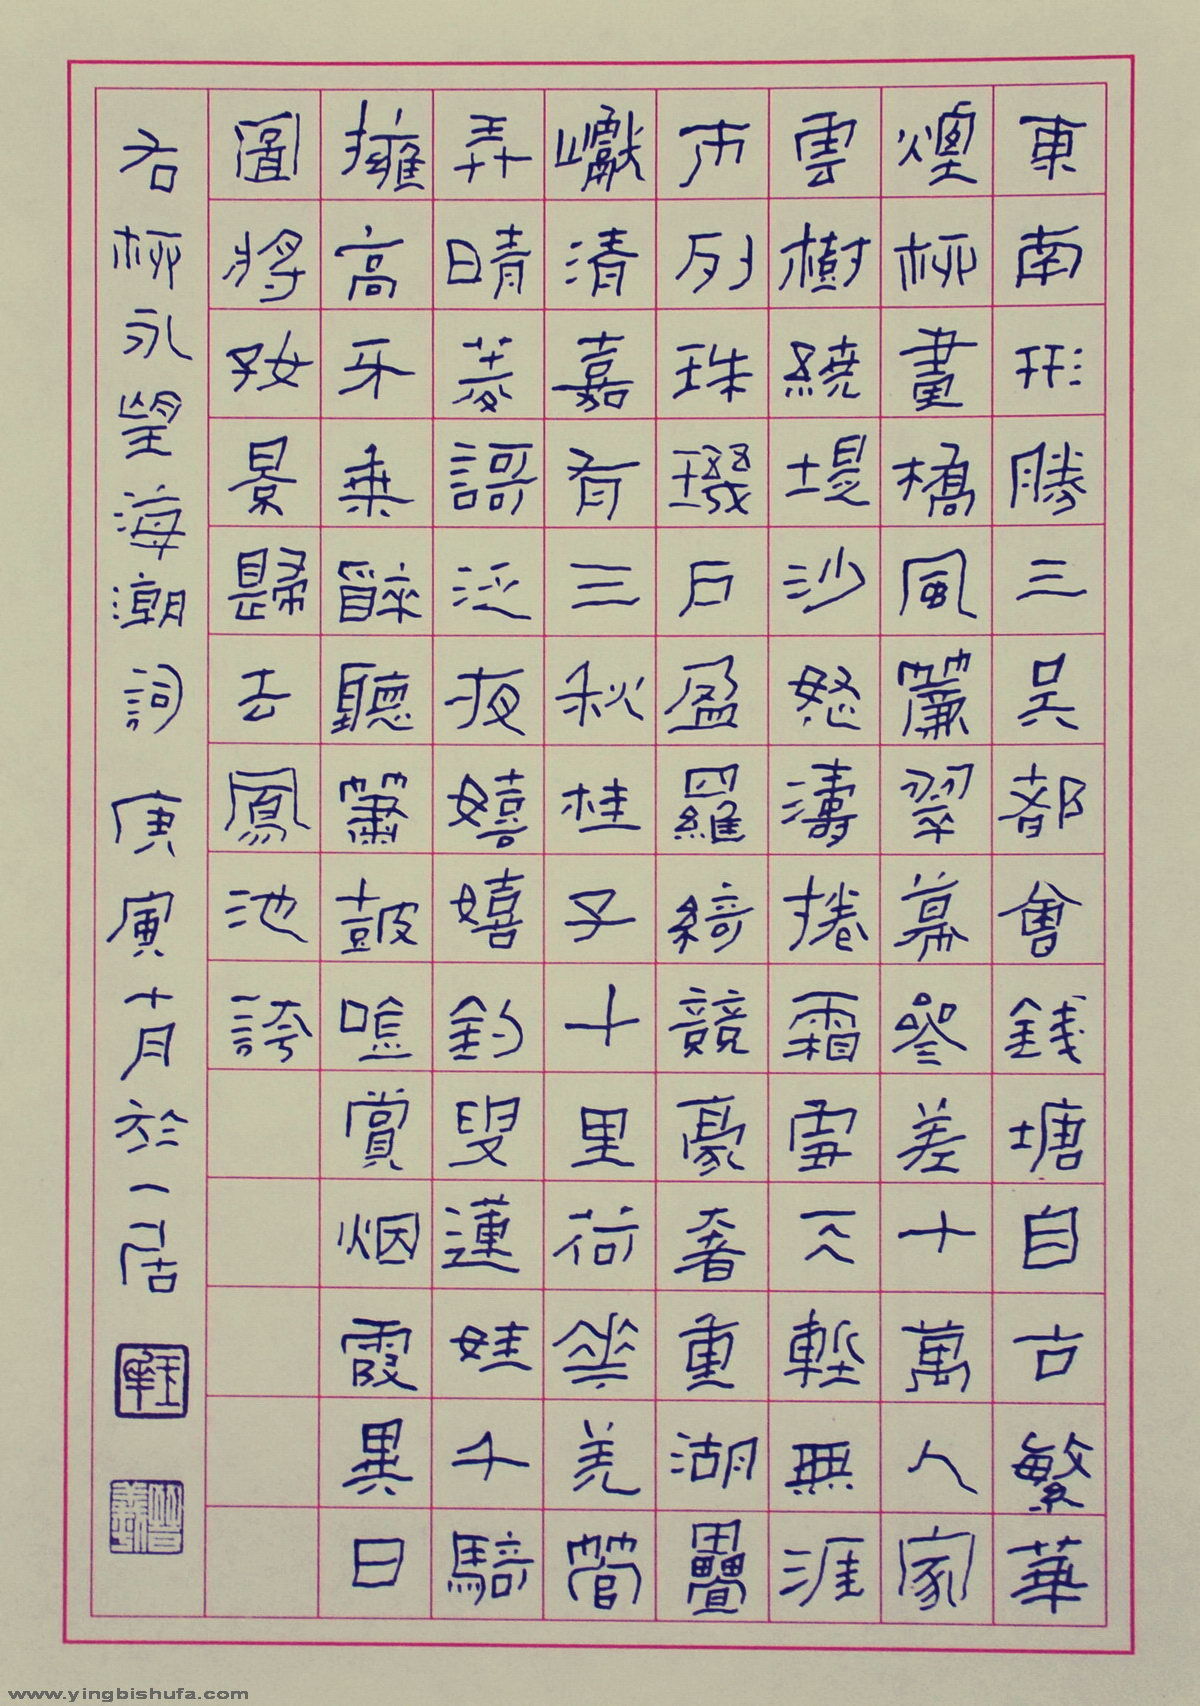 東南形勝三吳都會錢塘自古繁華
煙柳畫橋風簾翠幕參差十萬人家
雲樹繞堤沙怒濤捲霜雪天塹無涯
市列珠璣戶盈羅綺競豪奢重湖疊
巘清嘉有三秋桂子十里荷花羌管
弄晴菱謌泛夜嬉嬉釣叟蓮娃千騎
擁高牙乘醉聽簫鼓吟賞烟霞異日
圖將好景歸去鳳池誇
右柳永望海潮詞 庚寅十月於一居
www.yingbishufa.com